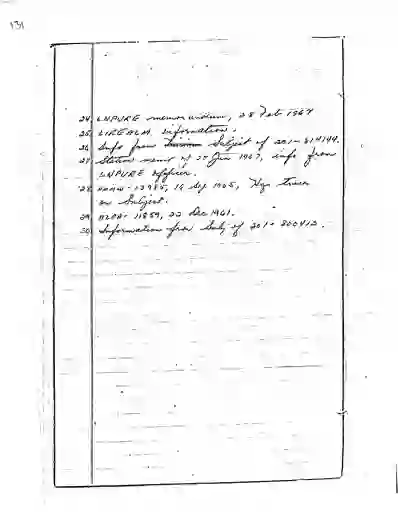 131
24 LNPURE memorandum, 28 Feb 1967
25 LIREALM information.
26 Info from Subject of 201-814144.
27 Station memo of 25 Jan 1967, info from
LNPURE officer.
28 13985, 16 Sep 1965, Hqs traces
on Subject.
29 11859, 22 Dec 1961.
30 Information from Subj of 201-800413.